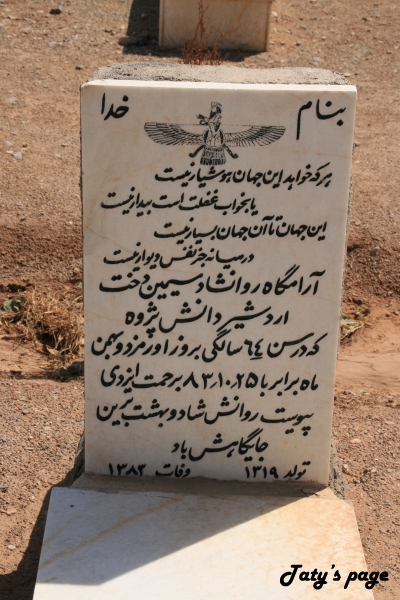 بنام خدا
هر که خواهد این جهان هوشیار نیست
یا بخواب غفلت است بیدار نیست
این جهان تا آن جهان بسیار نیست
در میانه جز نفس دیوار نیست
آرامگاه روانشاد سیمین دخت
اردشیر دانش پژوه
که در سن ٦٤ سالگی بروز اورمزد و بهمن
ماه برابر با ٨٣،١٠،٢٥ برحمت ایزدی
پیوست روانش شاد و بهشت برین
جایگاهش باد
تولد ١٣١٩ وفات ١٣٨٣
Taty's page